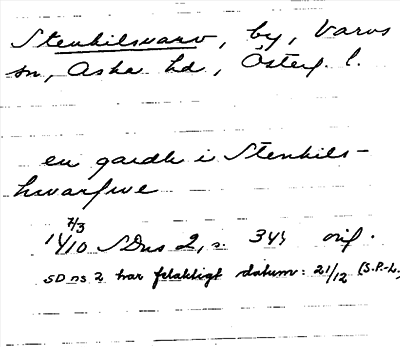 Stenkilsvarv, by, Varvs
sn, Aska hd, Österg. l.
en gardh i Stenkils-
hwarfwe
7/3
1410 SDns 2, s. 344 orig.
SD ns 2 har felaktigt datum: 21/12 (S.P.-L.